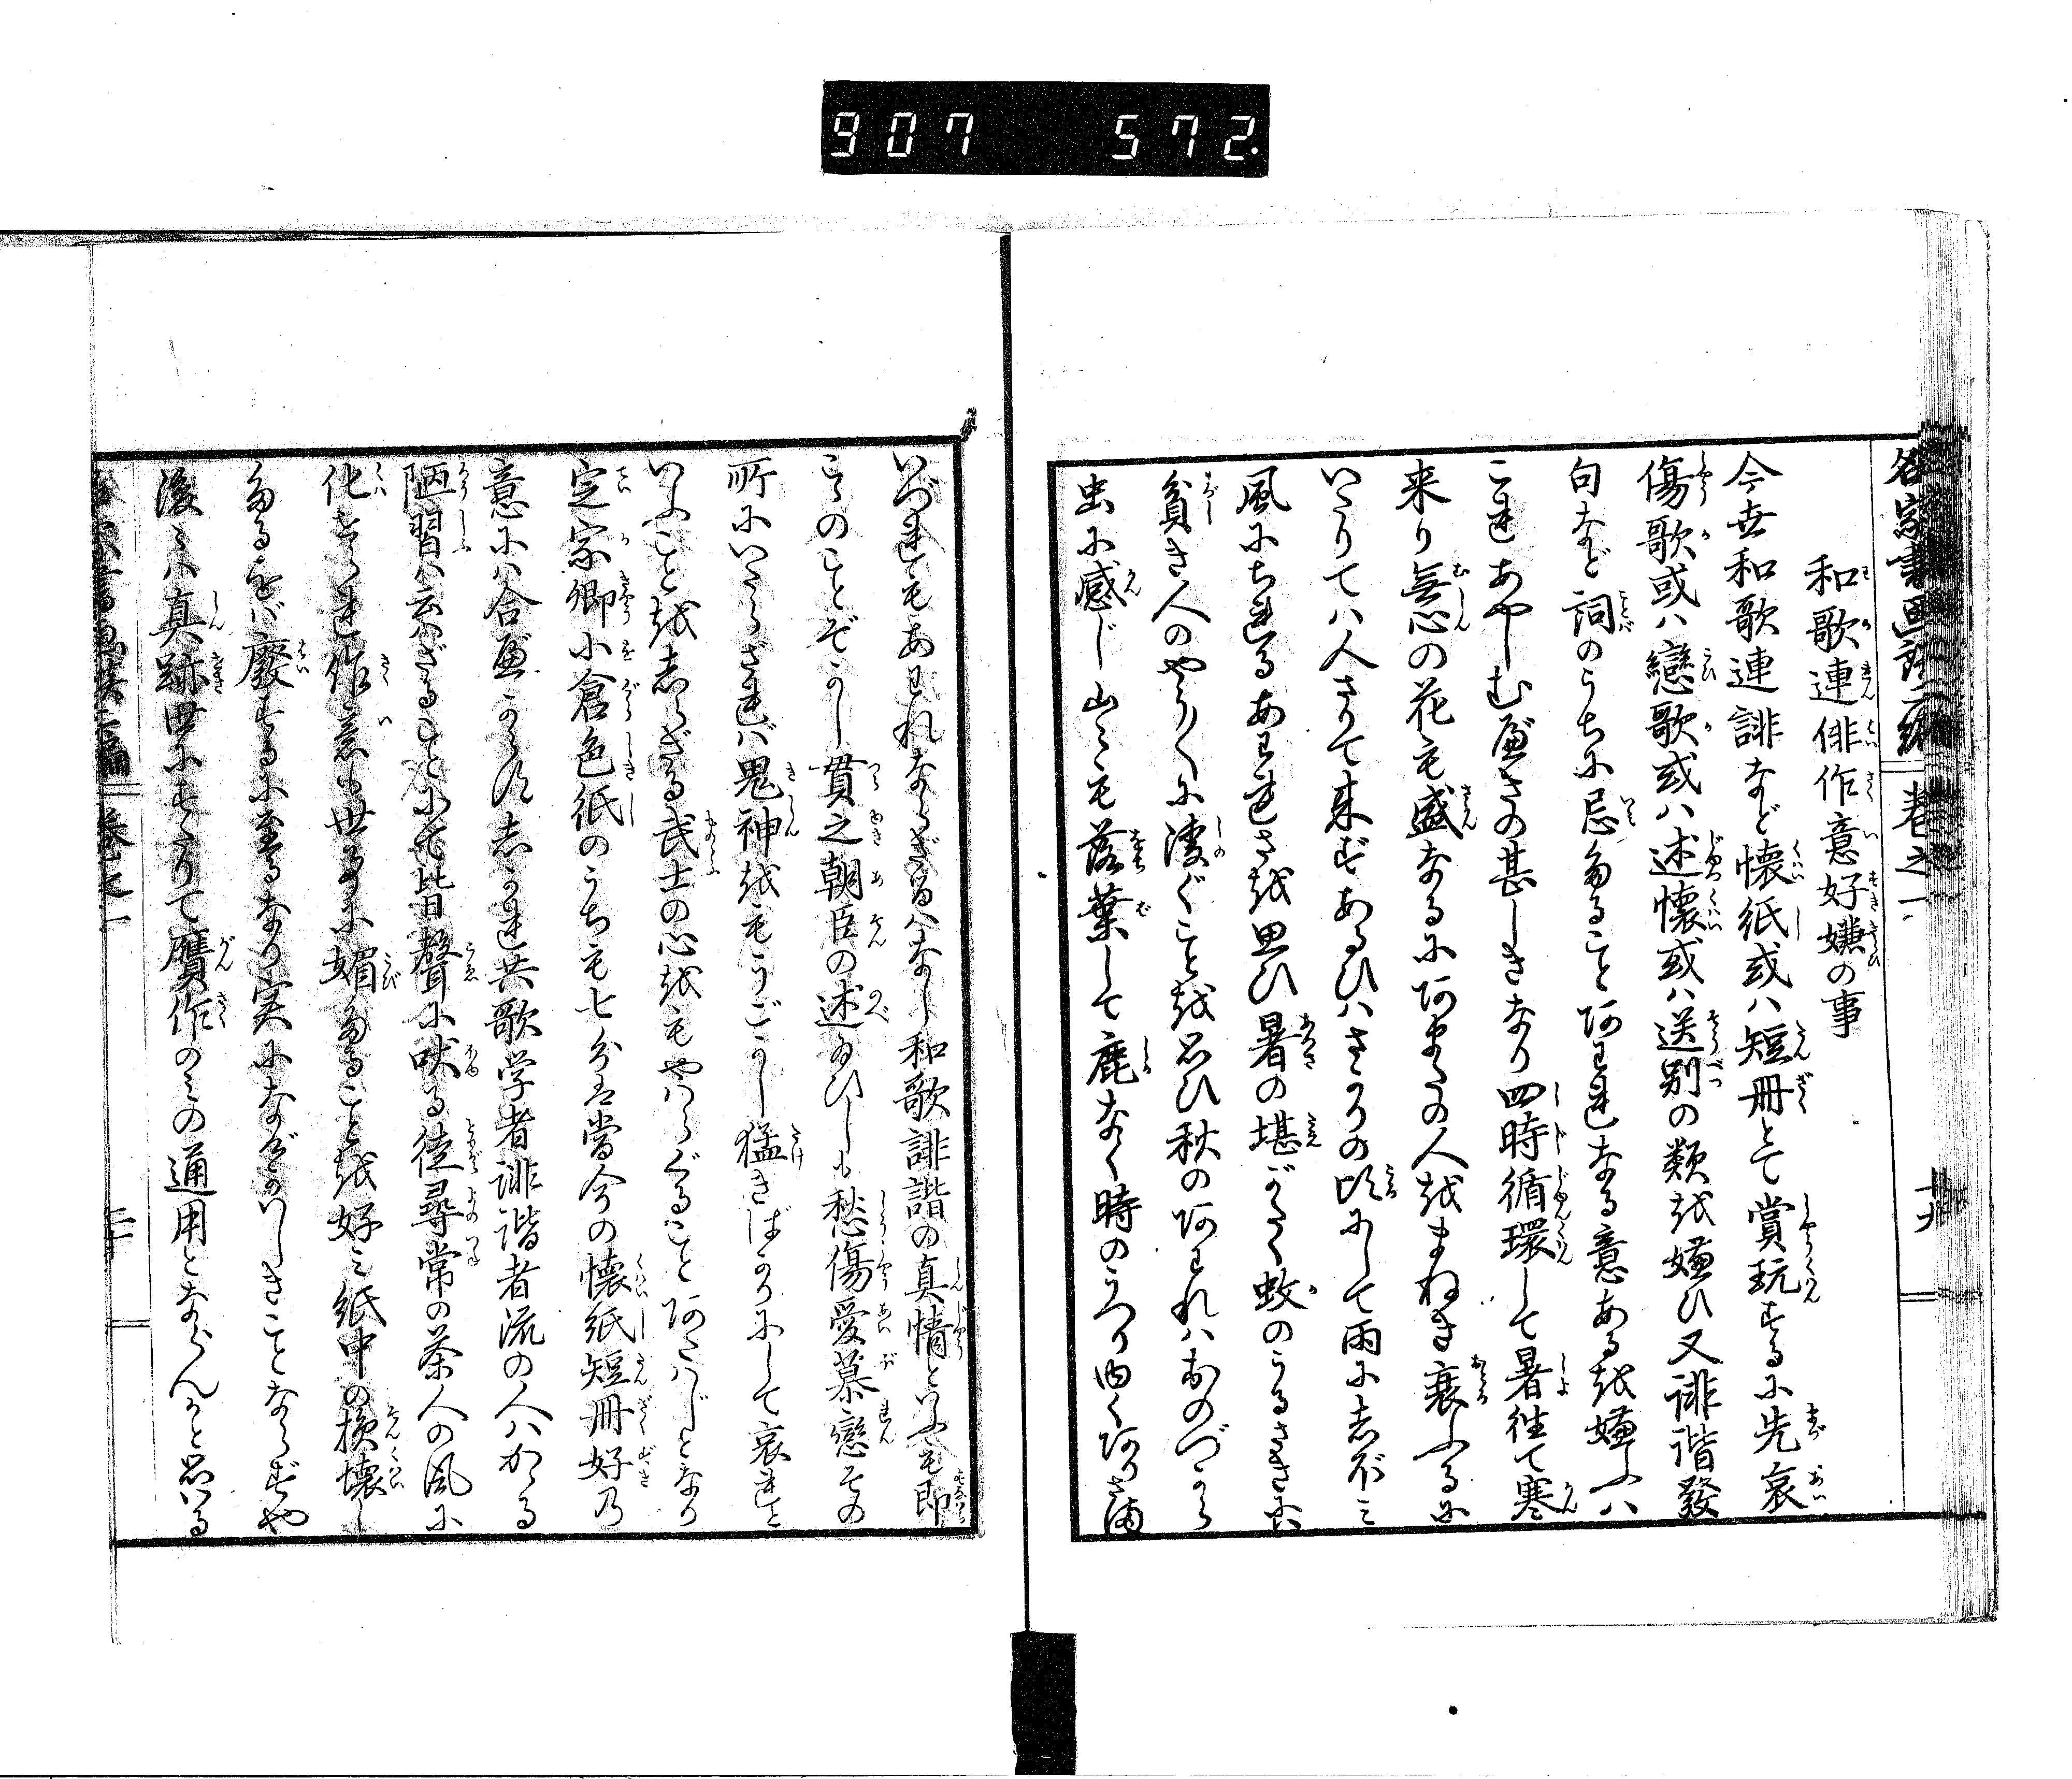 907 572.
名家書画談二編 巻之一 十九
和歌連俳作意好嫌の事
今世和歌連誹など懐紙或ハ短冊とて賞玩するに先哀
傷歌或ハ戀歌或ハ述懐或ハ送別の類を嫌ひ又誹諧發
句など詞のうちに忌たること阿われなる意あるを嫌ふハ
これあやしむべきの甚しきなり四時循環して暑往て寒
来り無心の花も盛なるに阿またの人をまねき衰ふるに
いたりてハ人さりて来ずあるひハさかりの比にして雨に志ぼミ
風にちれるあわれさを思ひ暑の堪がたく蚊のうるさきに
貧き人のやう〳〵に凌ぐことを思ひ秋の阿われハおのづから
虫に感じ山々も落葉して鹿なく時のうつり由く阿りさま
いづれもあわれならざるハなし和歌誹諧の真情といふも即
こゝのことぞかし貫之朝臣の述給ひしも愁傷愛慕戀その
所にいたらざれば鬼神をもうごかし猛きばかりにして哀れと
いふことを志らざる武士の心をもやハらぐること阿たハじとなり
定家卿小倉色紙のうちも七分は當今の懐紙短冊好乃
意にハ合べからず志かれ共歌学者誹諧者流の人ハかゝる
陋習ハ云ハざることに候皆聲に吠る徒尋常の茶人の風に
化せられ作意も世多に媚たることを好ミ紙中の損壊し
たるをバ廢するに至るなり実になげかハしきことならずや
後々ハ真跡世にすたりて贋作のミの通用とならんかと思ハる
名家書画談二編 巻之一 二十